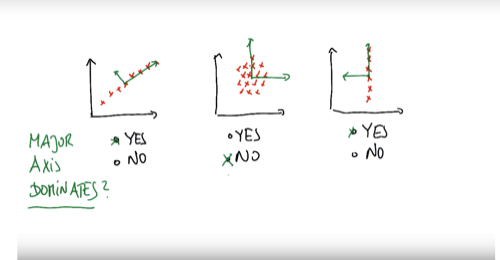 MAJOR
AXIS
DOMINATES?
YES
NO
YES
NO
YES
NO